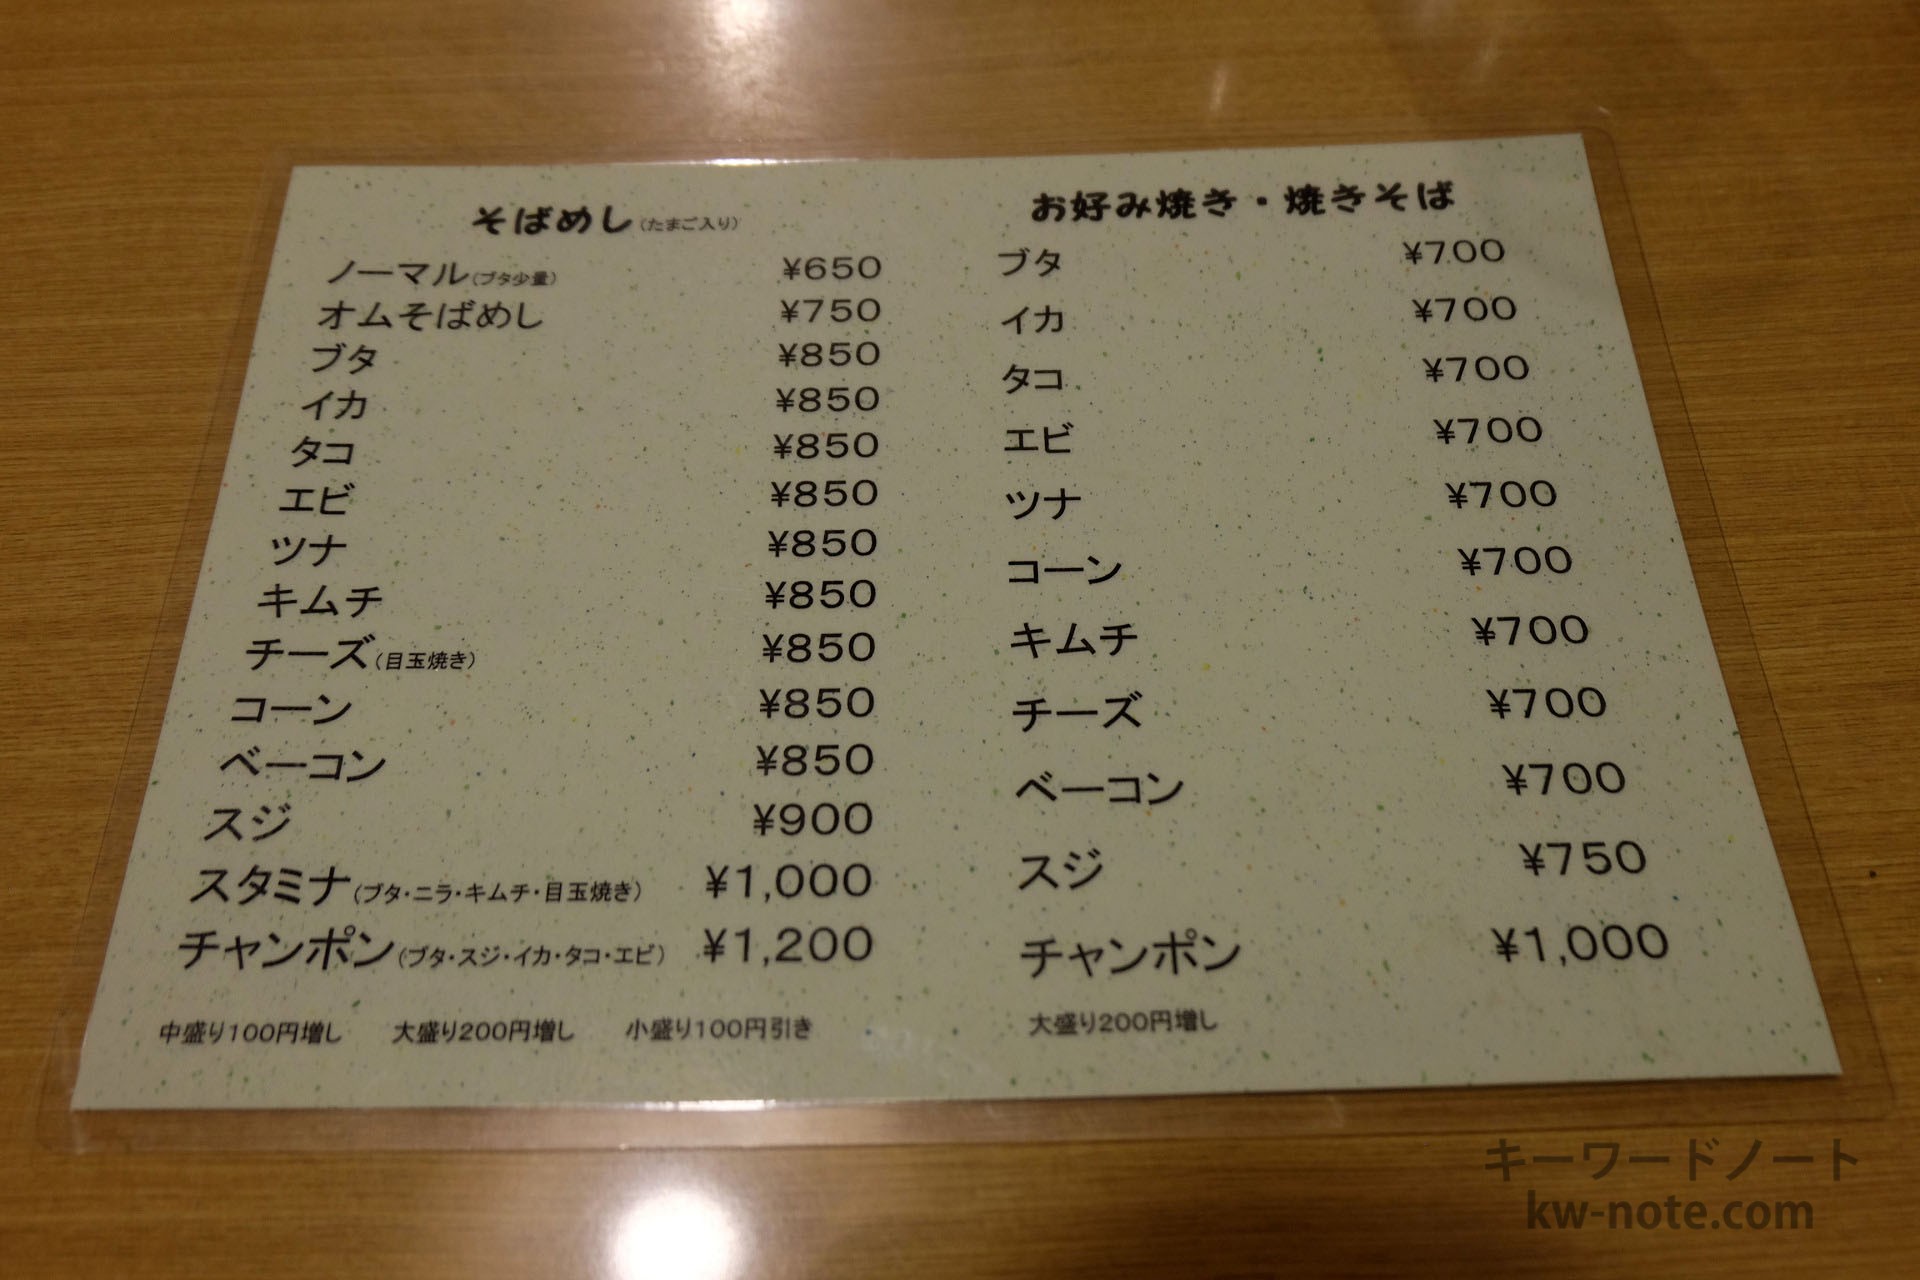 そばめし(たまご入り)
ノーマル(ブタ少量) ¥650
オムそばめし ¥750
ブタ ¥850
イカ ¥850
タコ ¥850
エビ ¥850
ツナ ¥850
キムチ ¥850
チーズ(目玉焼き) ¥850
コーン ¥850
ベーコン ¥850
スジ ¥900
スタミナ(ブタ・ニラ・キムチ・目玉焼き) ¥1,000
チャンポン(ブタ・スジ・イカ・タコ・エビ) ¥1,200
中盛り100円増し 大盛り200円増し 小盛り100円引き
お好み焼き・焼きそば
ブタ ¥700
イカ ¥700
タコ ¥700
エビ ¥700
ツナ ¥700
コーン ¥700
キムチ ¥700
チーズ ¥700
ベーコン ¥700
スジ ¥750
チャンポン ¥1,000
大盛り200円増し
キーワードノート
kw-note.com